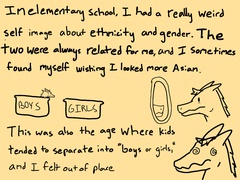 In elementary school, I had a really weird
self image about ethnicity and gender. The
two were always related for me, and I sometimes
found myself wishing I looked more Asian.
BOYS
GIRLS
This was also the age where kids
tended to separate into "boys or girls,"
and I felt out of place